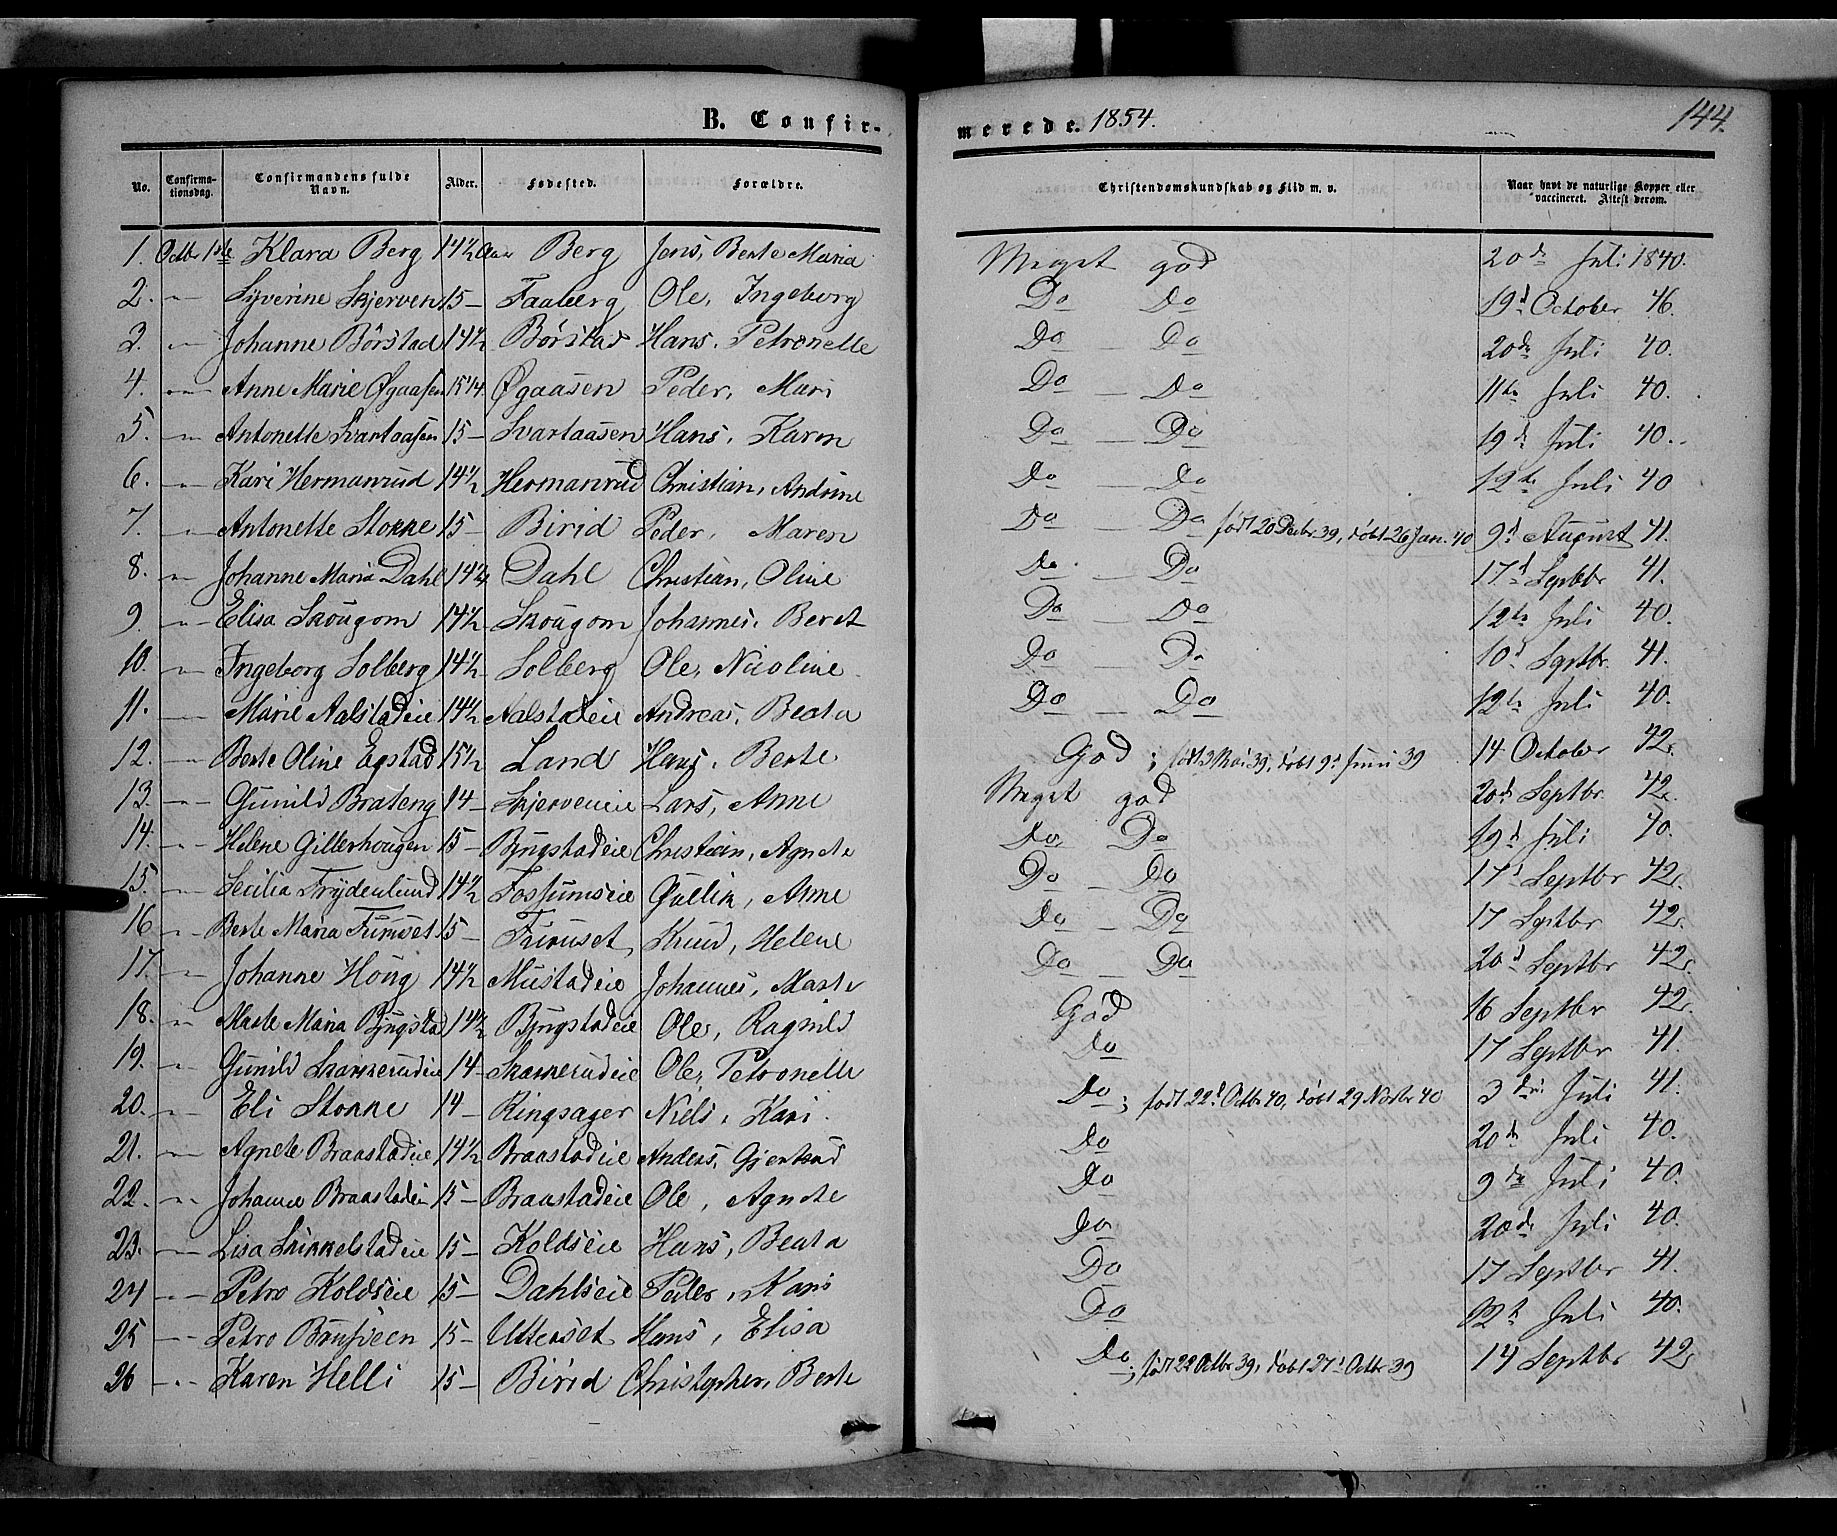 B. Confir-
merede. 1854. 144.
No. Confirma-tionsdag. Confirmandens fulde Navn. Alder. Fødested. Forældre. Christendomskundskab og Flid m. v. Naar havt de naturlige Kopper eller vaccineret. Attest derom.
1. Octbr 1ste Klara Berg 14½ Aar Berg Jens, Berte Maria Meget god 20de Juli 1840.
2. -"- Syverine Skjerven 15- Faaberg Ole, Ingeborg Do Do 19d October 46.
3. -"- Johanne Börstad 14½ Börstad Hans, Petronelle Do - Do 20de Juli 40.
4. -"- Anne Marie Øgaasen 15¼ Øgaasen Peder, Mari Do - Do 11te Juli 40.
5. -"- Antonette Svartaasen 15- Svartaasen Hans, Karen Do - Do 19d Juli 40.
6. -"- Kari Hermanrud 14½ Hermanrud Christian, Andrine Do - Do 12te Juli 40
7. -"- Antonette Stokke 15- Birid Peder, Maren Do - Do født 20 Decbr 39, døbt 26 Jan. 40 9d August 41.
8. -"- Johanne Maria Dahl Dahl Christian, Oline Do - Do 17d Septbr 41.
9. -"- Elisa Skougom 14½ Skougom Johannes, Beret Do - Do 12te Juli 40.
10. -"- Ingeborg Solberg 14½ Solberg Ole, Nicoline Do - Do 10d Septbr. 41.
11. -"- Marie Aalstadeie 14½ Aalstadeie Andreas, Beata Do - Do 12te Juli 40.
12. -"- Berte Oline Egstad 15½ Land Hans, Berte God; født 3 Mai 39, døbt 9d Juni 39 14 October 42.
13. -"- Gunild Brateng 14- Skjerveneie Lars, Anne Meget god 20d Septbr 42.
14. -"- Helene Gillerhougen 15- Bjugstadeie Christian, Agnete Do Do 19d Juli 40.
15. -"- Cecilia Frydenlund 14½ Fossumseie Gullik, Anne Do - Do 17d Septbr 42.
16 -"- Berte Maria Furuset 15- Furuset Knud, Helene Do - Do 17 Septbr 42.
17. -"- Johanne Houg 14½ Mustadeie Johannes, Marte Do - Do 20d Septbr 42.
18. -"- Marte Maria Bjugstad 14½ Bjugstadeie Ole, Ragnild God 16 Septbr 42.
19. -"- Gunild Skakkerudeie 14- Skakkerudeie Ole, Petronelle Do 17 Septbr 41.
20. -"- Eli Stokke 14- Ringsager Niels, Kari Do; født 22d Octbr 40, døbt 29 Novbr 40 3die Juli 41.
21. -"- Agnete Braastadeie 14½ Braastadeie Anders, Gjertrud Do 20de Juli 40.
22. -"- Johanne Braastadeie 15- Braastadeie Ole, Agnete Do 9de Juli 40.
23. -"- Lisa Skikkelstadeie 15- Koldseie Hans, Beata Do 20de Juli 40.
24 -"- Petro Koldseie 15- Dahlseie Peder, Kari Do 17 Septbr 41.
25 -"- Petro 15- Utterset Hans, Elisa Do Juli 40.
26 -"- Karen Helli 15- Birid Christopher, Berte Do; født 22 Octbr 39, døbt 27d Octbr 39 14 Septbr 42